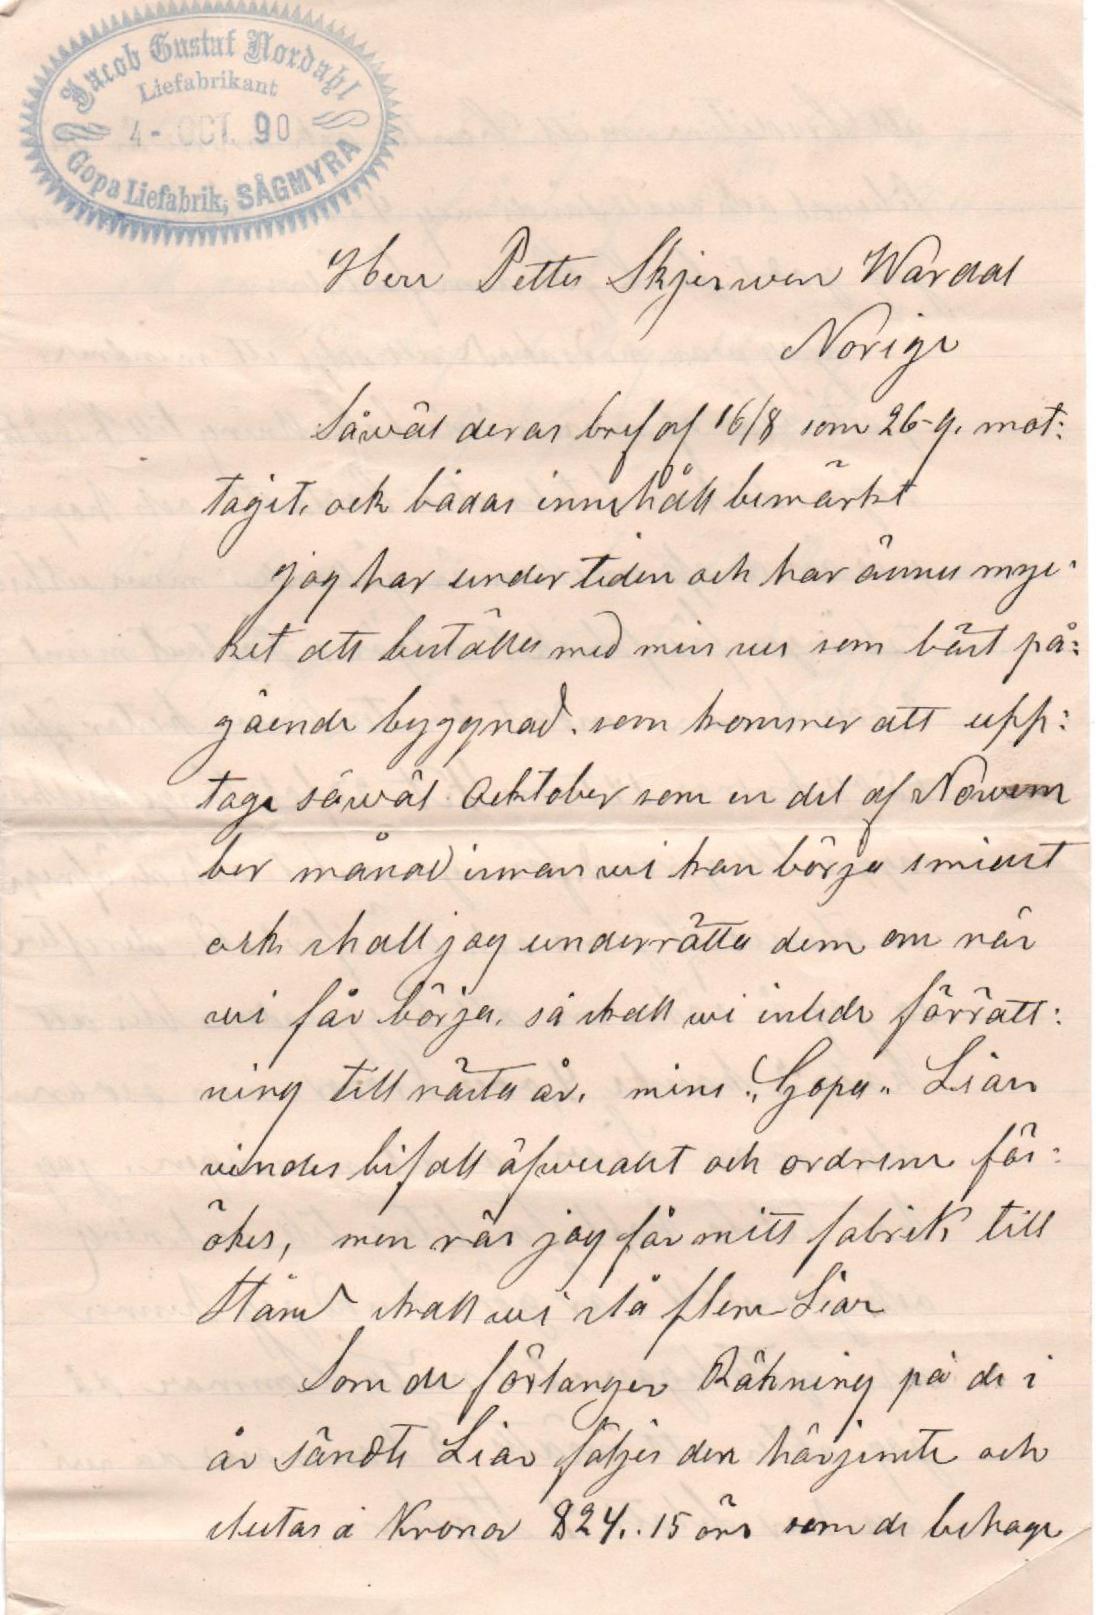 Jacob Gustaf Nordahl
Liefabrikant
4- OCT. 90
Gopa Liefabrik, SÅGMYRA
Herr Petter Skjerwen Wardal
Norige
Såwäl deras bref af 16/8 som 26-9. mot:
tagit. ock bådas innehåll bemärkt
jag har under tiden och har ännu mye:
ket att beställa med min nu som bäst på:
gående byggnad. som kommer att upp:
taga såwäl Ocktober som en del af Nowem
ber månad innan wi kan börja smidet
ock skall jag underrätta dem om när
wi får börja. så skall wi inleda förrätt:
ning till nästa år. mina „Gopa„ Liar
vinder bifall öfwerallt och ordrene för:
ökes, men när jag får mitt fabrik till
stånd skall wi slå flera Liar
Som de förlanger Räkning på de i
år sändte Liar föhjer den härjemte och
slutas á Kronor 824..15 öre som de behage